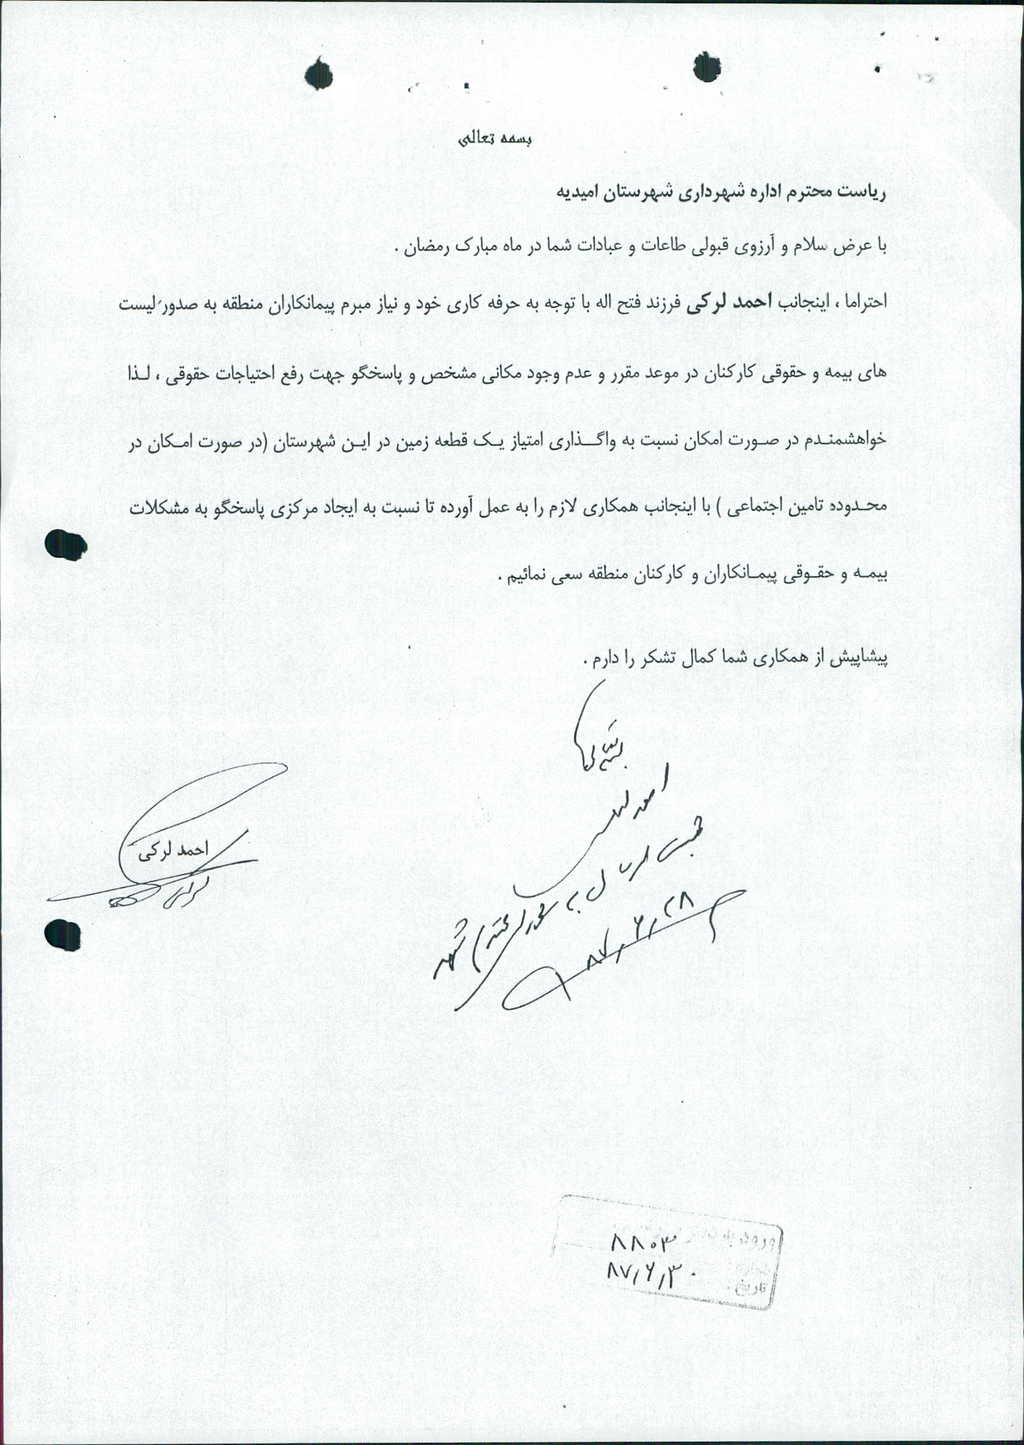 بسمه تعالی
ریاست محترم اداره شهرداری شهرستان امیدیه
با عرض سلام و آرزوی قبولی طاعات و عبادات شما در ماه مبارک رمضان .
احتراما ، اینجانب احمد لرکی فرزند فتح اله با توجه به حرفه کاری خود و نیاز مبرم پیمانکاران منطقه به صدور لیست
های بیمه و حقوقی کارکنان در موعد مقرر و عدم وجود مکانی مشخص و پاسخگو جهت رفع احتیاجات حقوقی ، لـذا
خواهشمنـدم در صـورت امکان نسبت به واگـذاری امتیاز یـک قطعه زمین در ایـن شهرستان (در صورت امـکان در
محـدوده تامین اجتماعی ) با اینجانب همکاری لازم را به عمل آورده تا نسبت به ایجاد مرکزی پاسخگو به مشکلات
بیمـه و حقـوقی پیمـانکاران و کارکنان منطقه سعی نمائیم .
پیشاپیش از همکاری شما کمال تشکر را دارم .
احمد لرکی
۸۷٫۶٫۲۸
۸۸۰۳
تاریخ ۸۷٫۶٫۳۰